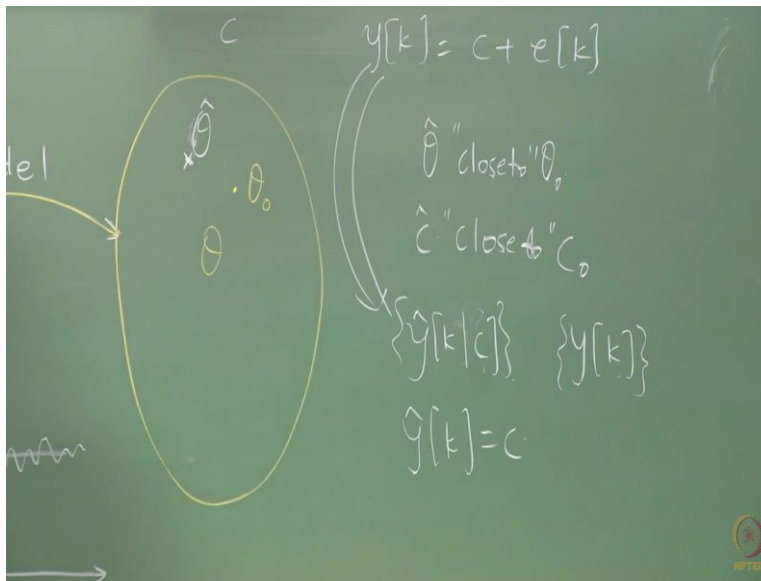 C
y[k] = c + e[k]
del
θ̂
θ̂ "close to" θ₀
θ₀
θ
ĉ "close to" c₀
{ŷ[k|c]} {y[k]}
ŷ[k] = c
NPTEL